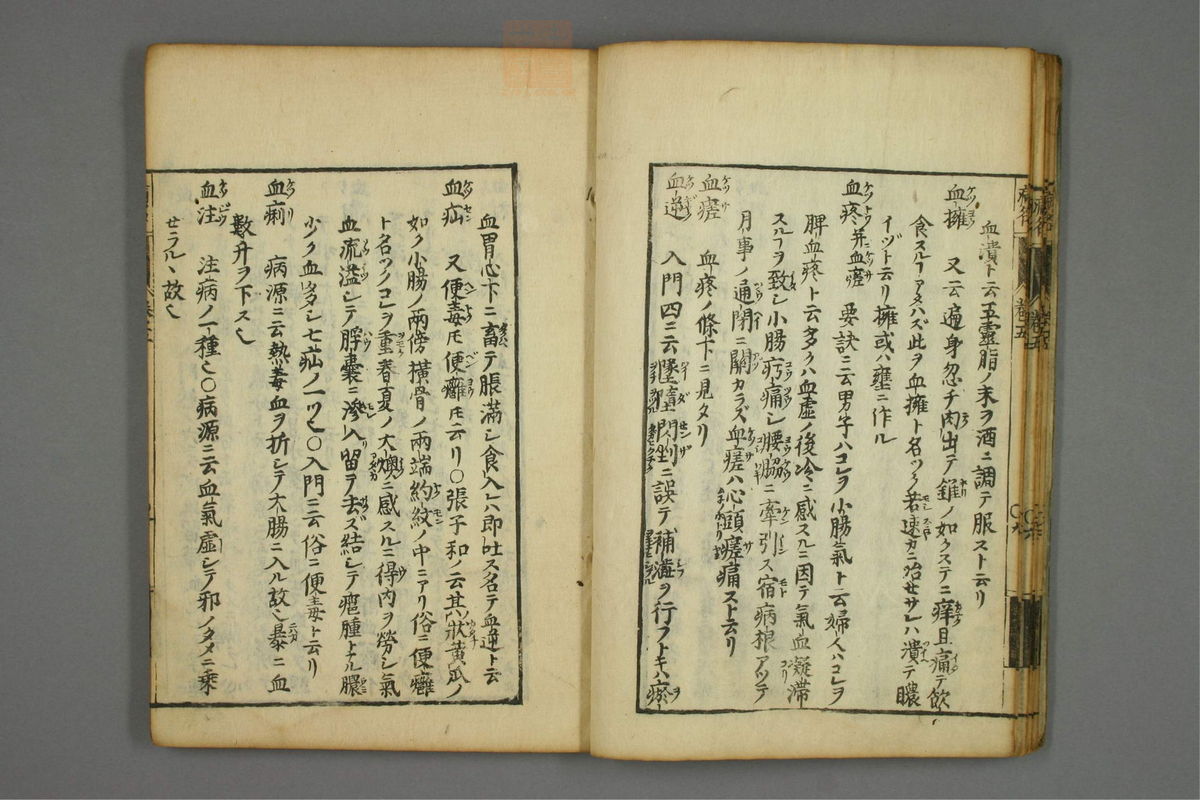 血潰ト云五靈脂ノ末ヲ酒ニ調テ服スト云リ
血擁 又云遍身忽チ肉出テ錐ノ如クステニ痒且痛テ飲
食スルヿアタハズ此ヲ血擁ト名ツク若速カニ治セサレハ潰テ膿
イヅト云リ擁或ハ壅ニ作ル
血疼并血瘥 要訣ニ云男子ハコレヲ小腸氣ト云婦人ハコレヲ
脾血疼ト云多クハ血虚ノ後冷ニ感スルニ因テ氣血凝滞
スルヿヲ致シ小腸痛シ腰脇ニ牽引ス宿病根アツテ
月事ノ通閉ニ關カラズ血瘥ハ心頭瘥痛スト云リ
血瘥 血疼ノ條下ニ見タリ
血逆 入門四ニ云墜墮閃剉ニ誤テ補澁ヲ行フトキハ瘀
血胃心下ニ畜テ脹満シ食入レハ即吐ス名テ血逆ト云
血疝 又便毒モ便癰モ云リ〇張子和ノ云其狀黄瓜ノ
如ク小腸ノ兩傍横骨ノ兩端約紋ノ中ニアリ俗ニ便癰
ト名ツクコレヲ重春夏ノ大燠ニ感スルニ得内ヲ勞シ氣
血流溢シテ脬囊ニ滲入留テ去ズ結シテ癰腫トナル膿
少ク血多シ七疝ノ一ツ也〇入門ニ云俗ニ便毒ト云リ
血痢 病源ニ云熱毒血ヲ折シテ大腸ニ入ル故也暴ニ血
數升ヲ下ス也
血注 注病ノ一種也〇病源ニ云血氣虚シテ邪ノタメニ乗
セラル丶故也